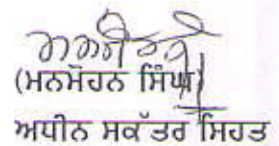 (ਮਨਮੋਹਨ ਸਿੰਘ)
ਅਧੀਨ ਸਕੱਤਰ ਸਿਹਤ